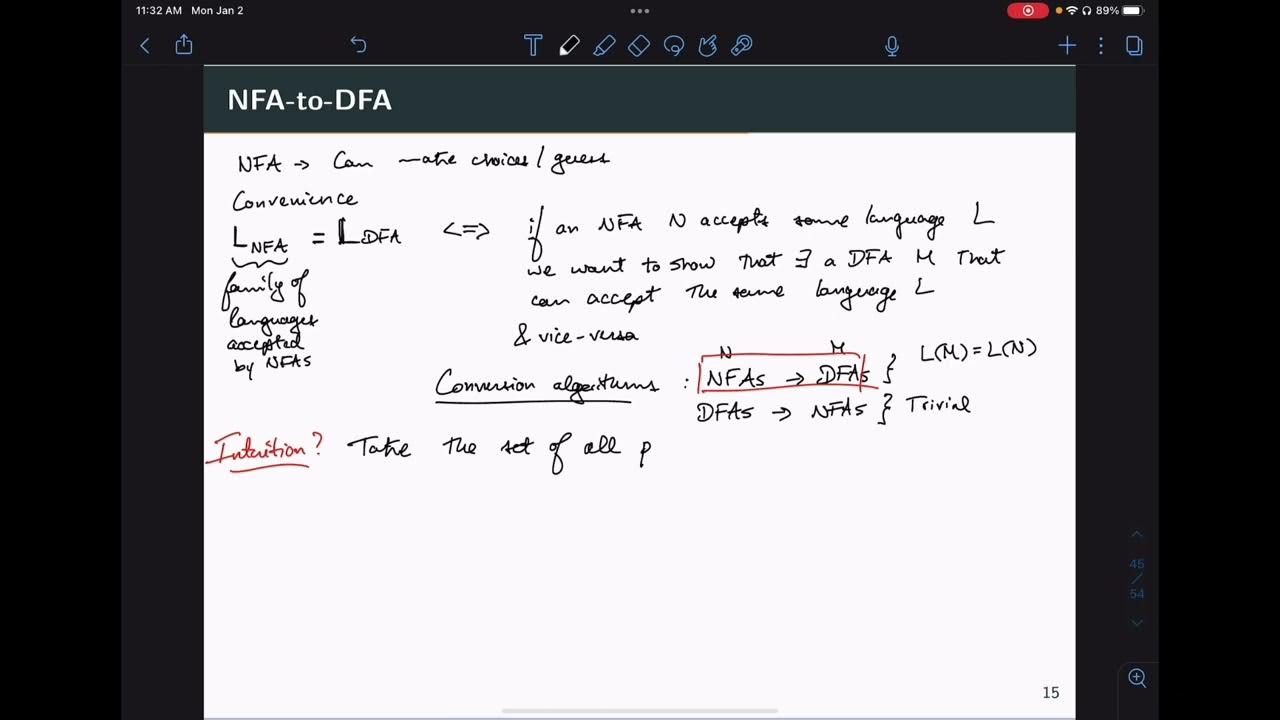 11:32 AM Mon Jan 2
89%
NFA-to-DFA
NFA → Can make choices / guess
Convenience
L NFA = L DFA <=> if an NFA N accepts some language L
we want to show that ∃ a DFA M that
can accept the same language L
& vice-versa
family of
languages
accepted
by NFAs
N M
Conversion algorithms : NFAs → DFAs } L(M) = L(N)
DFAs → NFAs } Trivial
Intuition? Take the set of all p
45
/
54
15